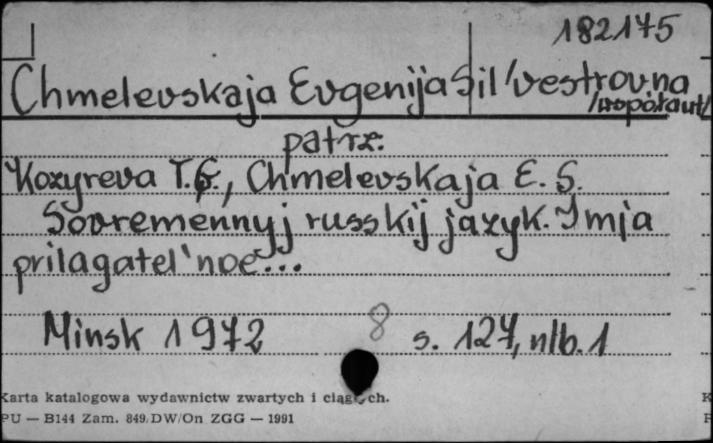 182175
Chmelevskaja Evgenija Sil'vestrovna
/współaut/
patrz.
Kozyreva T.G., Chmelevskaja E. S.
Sovremennyj russkij jazyk. Imja
prilagatel'noe...
Minsk 1972 8 s. 127, nlb. 1
Karta katalogowa wydawnictw zwartych i ciągłych.
PU — B144 Zam. 849/DW/On ZGG — 1991